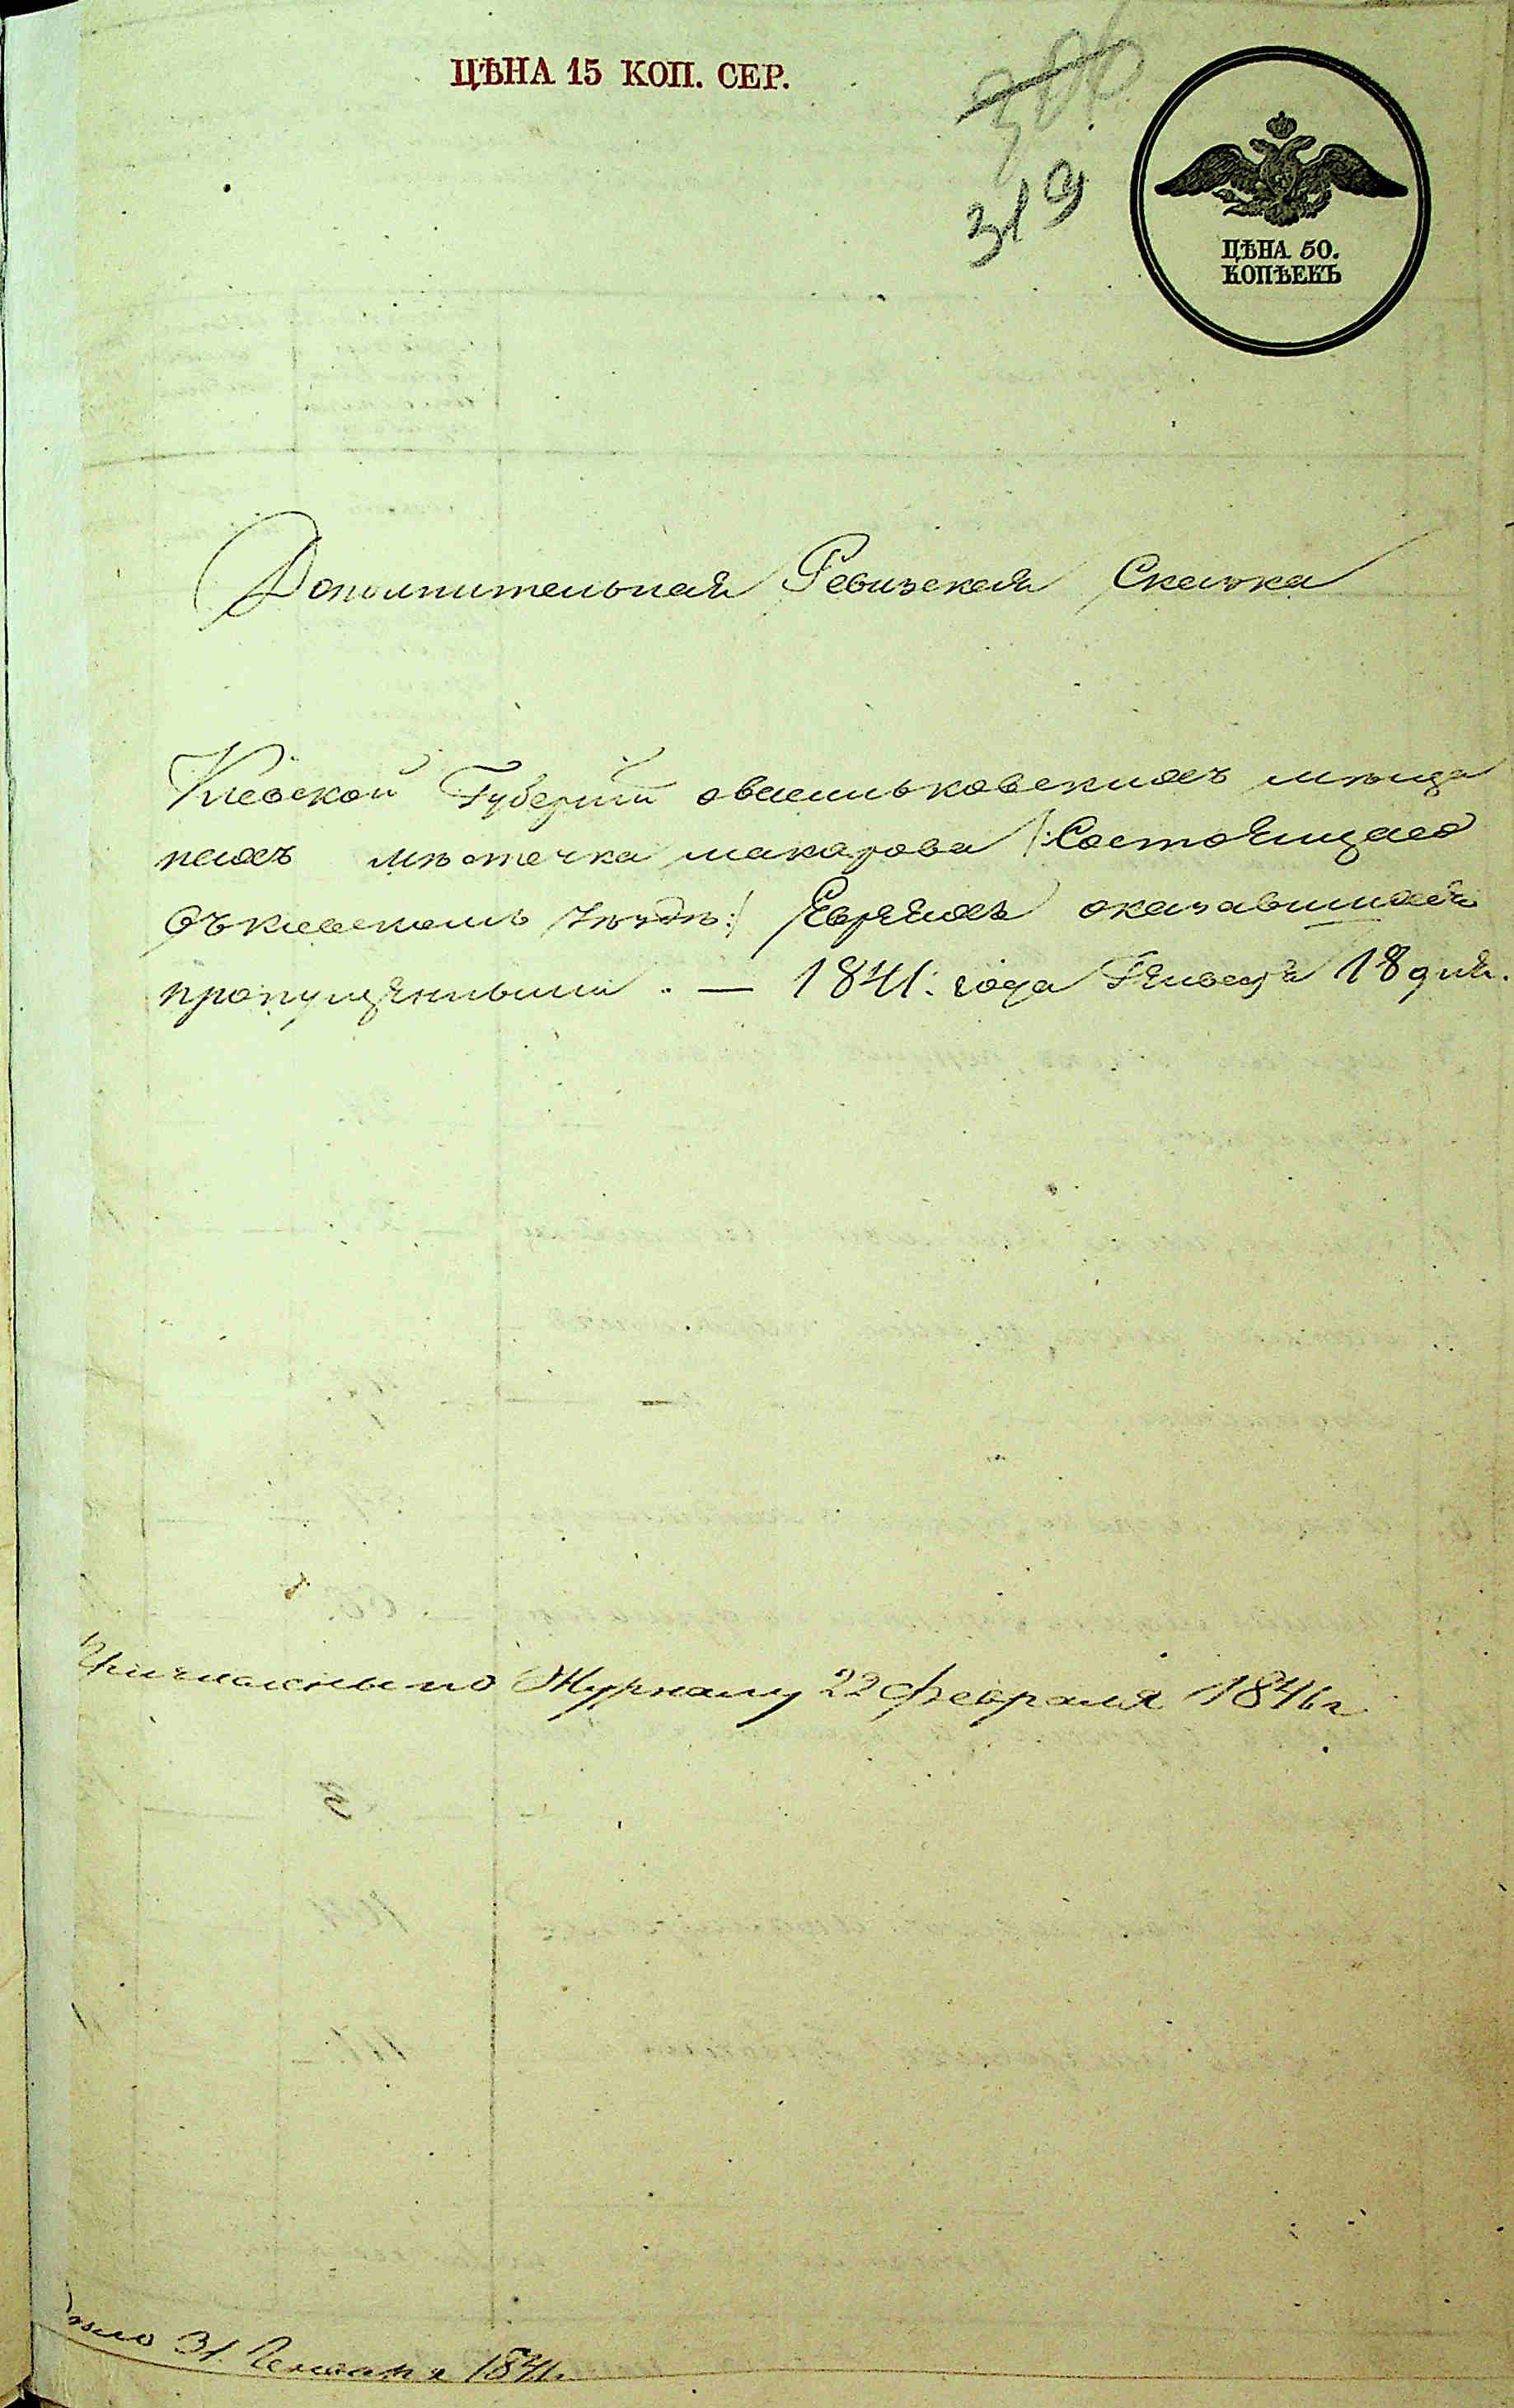 ЦѢНА 15 КОП. СЕР.
306
319
ЦѢНА 50.
КОПѢЕКЪ
Дополнительная Ревизская Сказка
Киевской Губернии овасильковскихъ мѣща
нахъ мѣстечка макарова /:Состоящаго
въ киевскомъ уѣздѣ:/ Евреяхъ оказавшихся
пропущенными. — 1841: года Генваря 18 дня.
Причислены по Журналу 22 февраля 1846 г
31 Генваря 1841